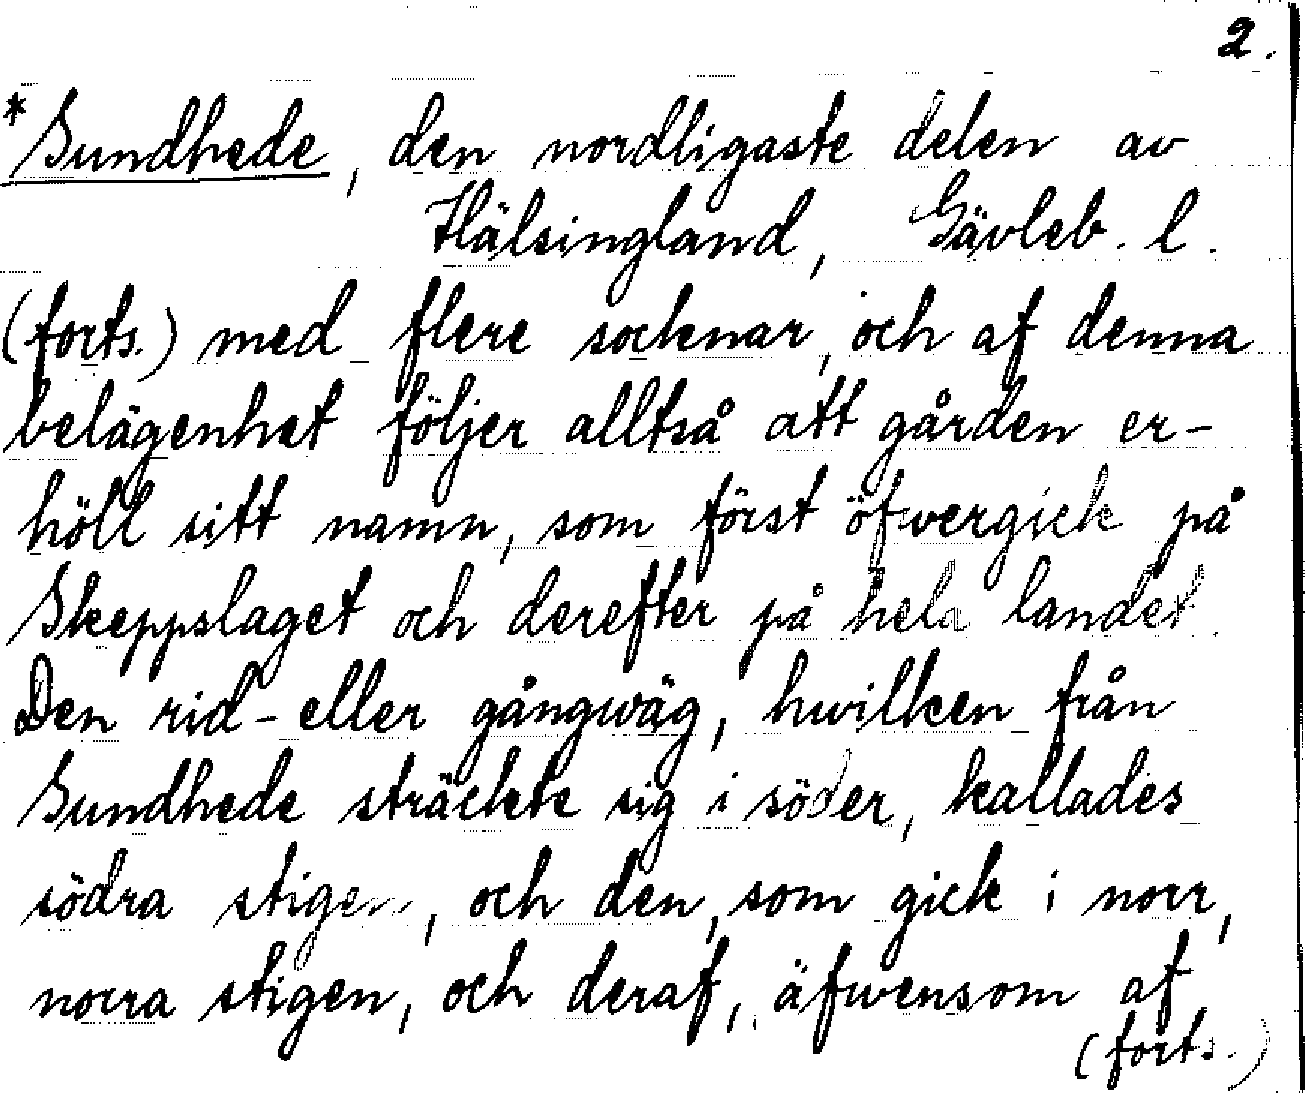 2.
*Sundhede, den nordligaste delen av
Hälsingland, Gävleb. l.
(forts.) med flere socknar, och af denna
belägenhet följer alltså att gården er-
höll sitt namn, som först öfwergick på
Skeppslaget och derefter på hela landet.
Den rid- eller gångwäg, hwilken från
Sundhede sträckte sig i söder, kallades
södra stigen, och den, som gick i norr,
norra stigen, och deraf, äfwensom af
(forts.)